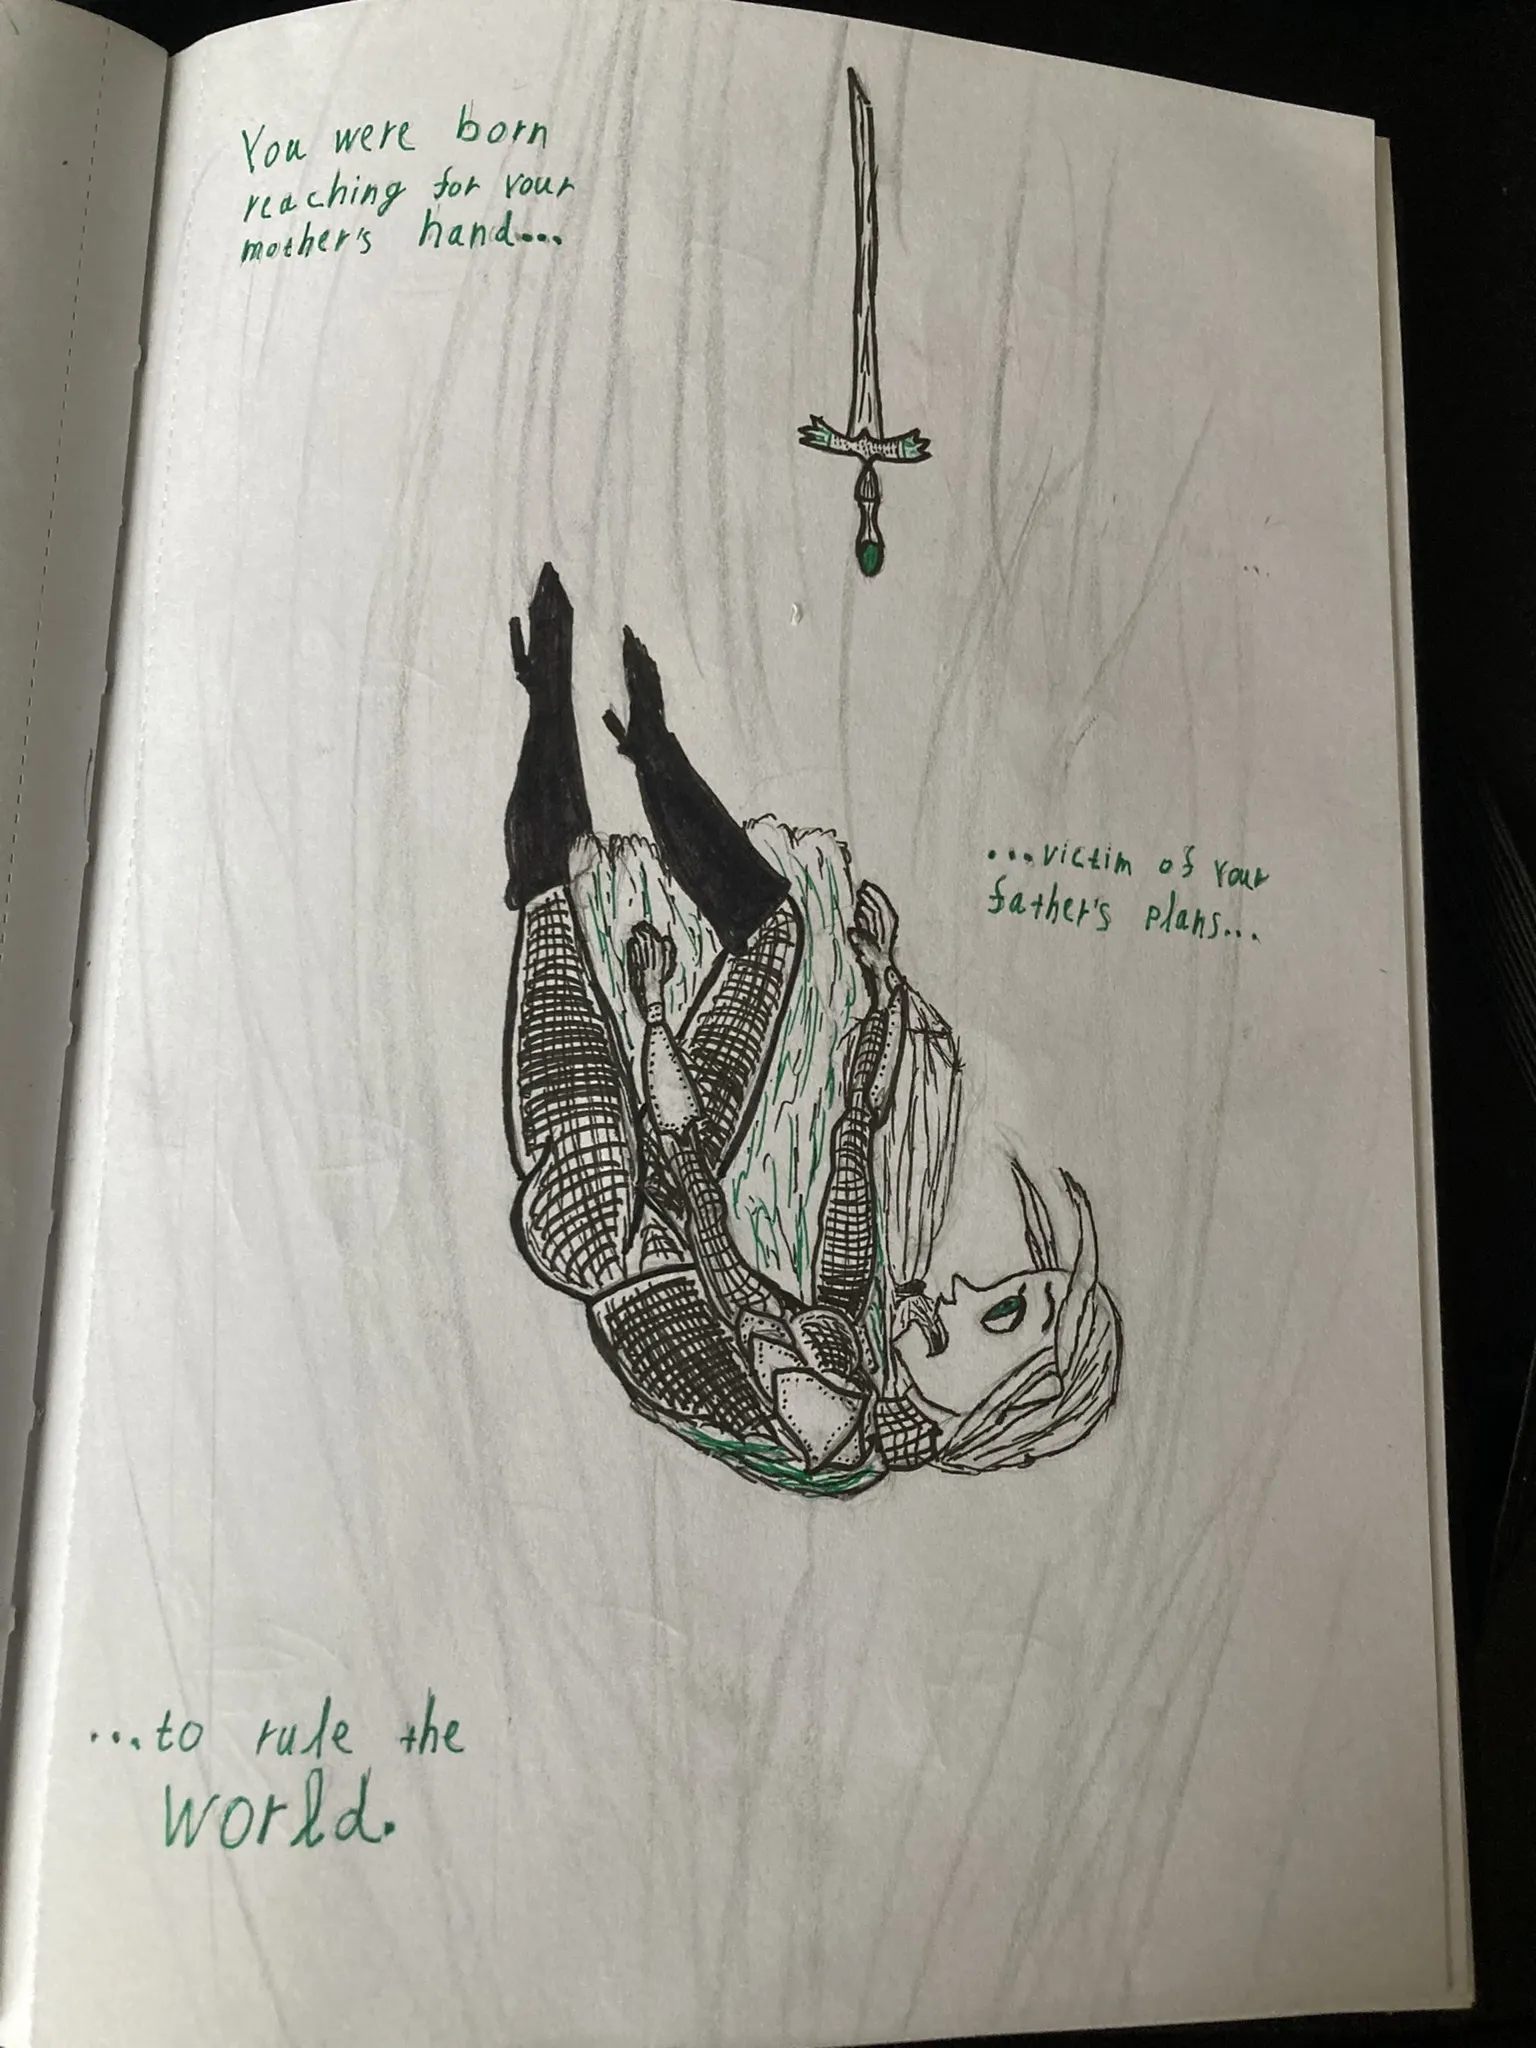 You were born
reaching for your
mother's hand...
...victim of your
father's plans...
...to rule the
world.